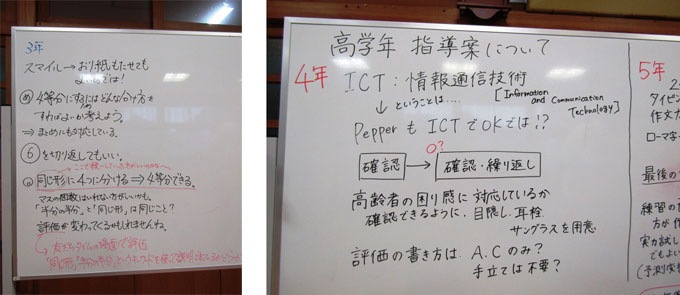 3年
スマイル→おり紙もたせても
よいのでは!
め 4等分にするにはどんな分け方を
すればよいか考えよう。
⇒まとめにも対応している。
⑥を切り返してもいい。
同じ形に4つに分ける⇒4等分できる。
マスの個数はいれない方がいいかも。
「半分の半分」と「同じ形」は同じこと?
評価が変わってくるかもしれませんね。
の場面で評価
「同じ形」「半分の半分」というキーワードを使って説明
高学年 指導案について
4年 ICT:情報通信技術
↓ということは.... [Information and Communication Technology]
PepperもICTでOKでは!?
○?
確認 → 確認・繰り返し
高齢者の困り感に対応しているか
確認できるように、目隠し、耳栓
サングラスを用意
評価の書き方は A.Cのみ?
手立ては不要?
5年
タイピン
作文
ローマ字
最後の
練習の
方が
実力試し
でもよい
(予測変換